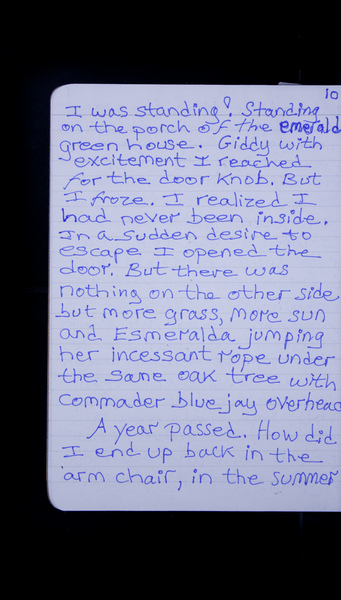 10
I was standing! Standing
on the porch of the emerald
green house. Giddy with
excitement I reached
for the door knob. But
I froze. I realized I
had never been inside.
In a sudden desire to
escape I opened the
door. But there was
nothing on the other side
but more grass, more sun
and Esmeralda jumping
her incessant rope under
the same oak tree with
commader blue jay overhead
A year passed. How did
I end up back in the
arm chair, in the summer